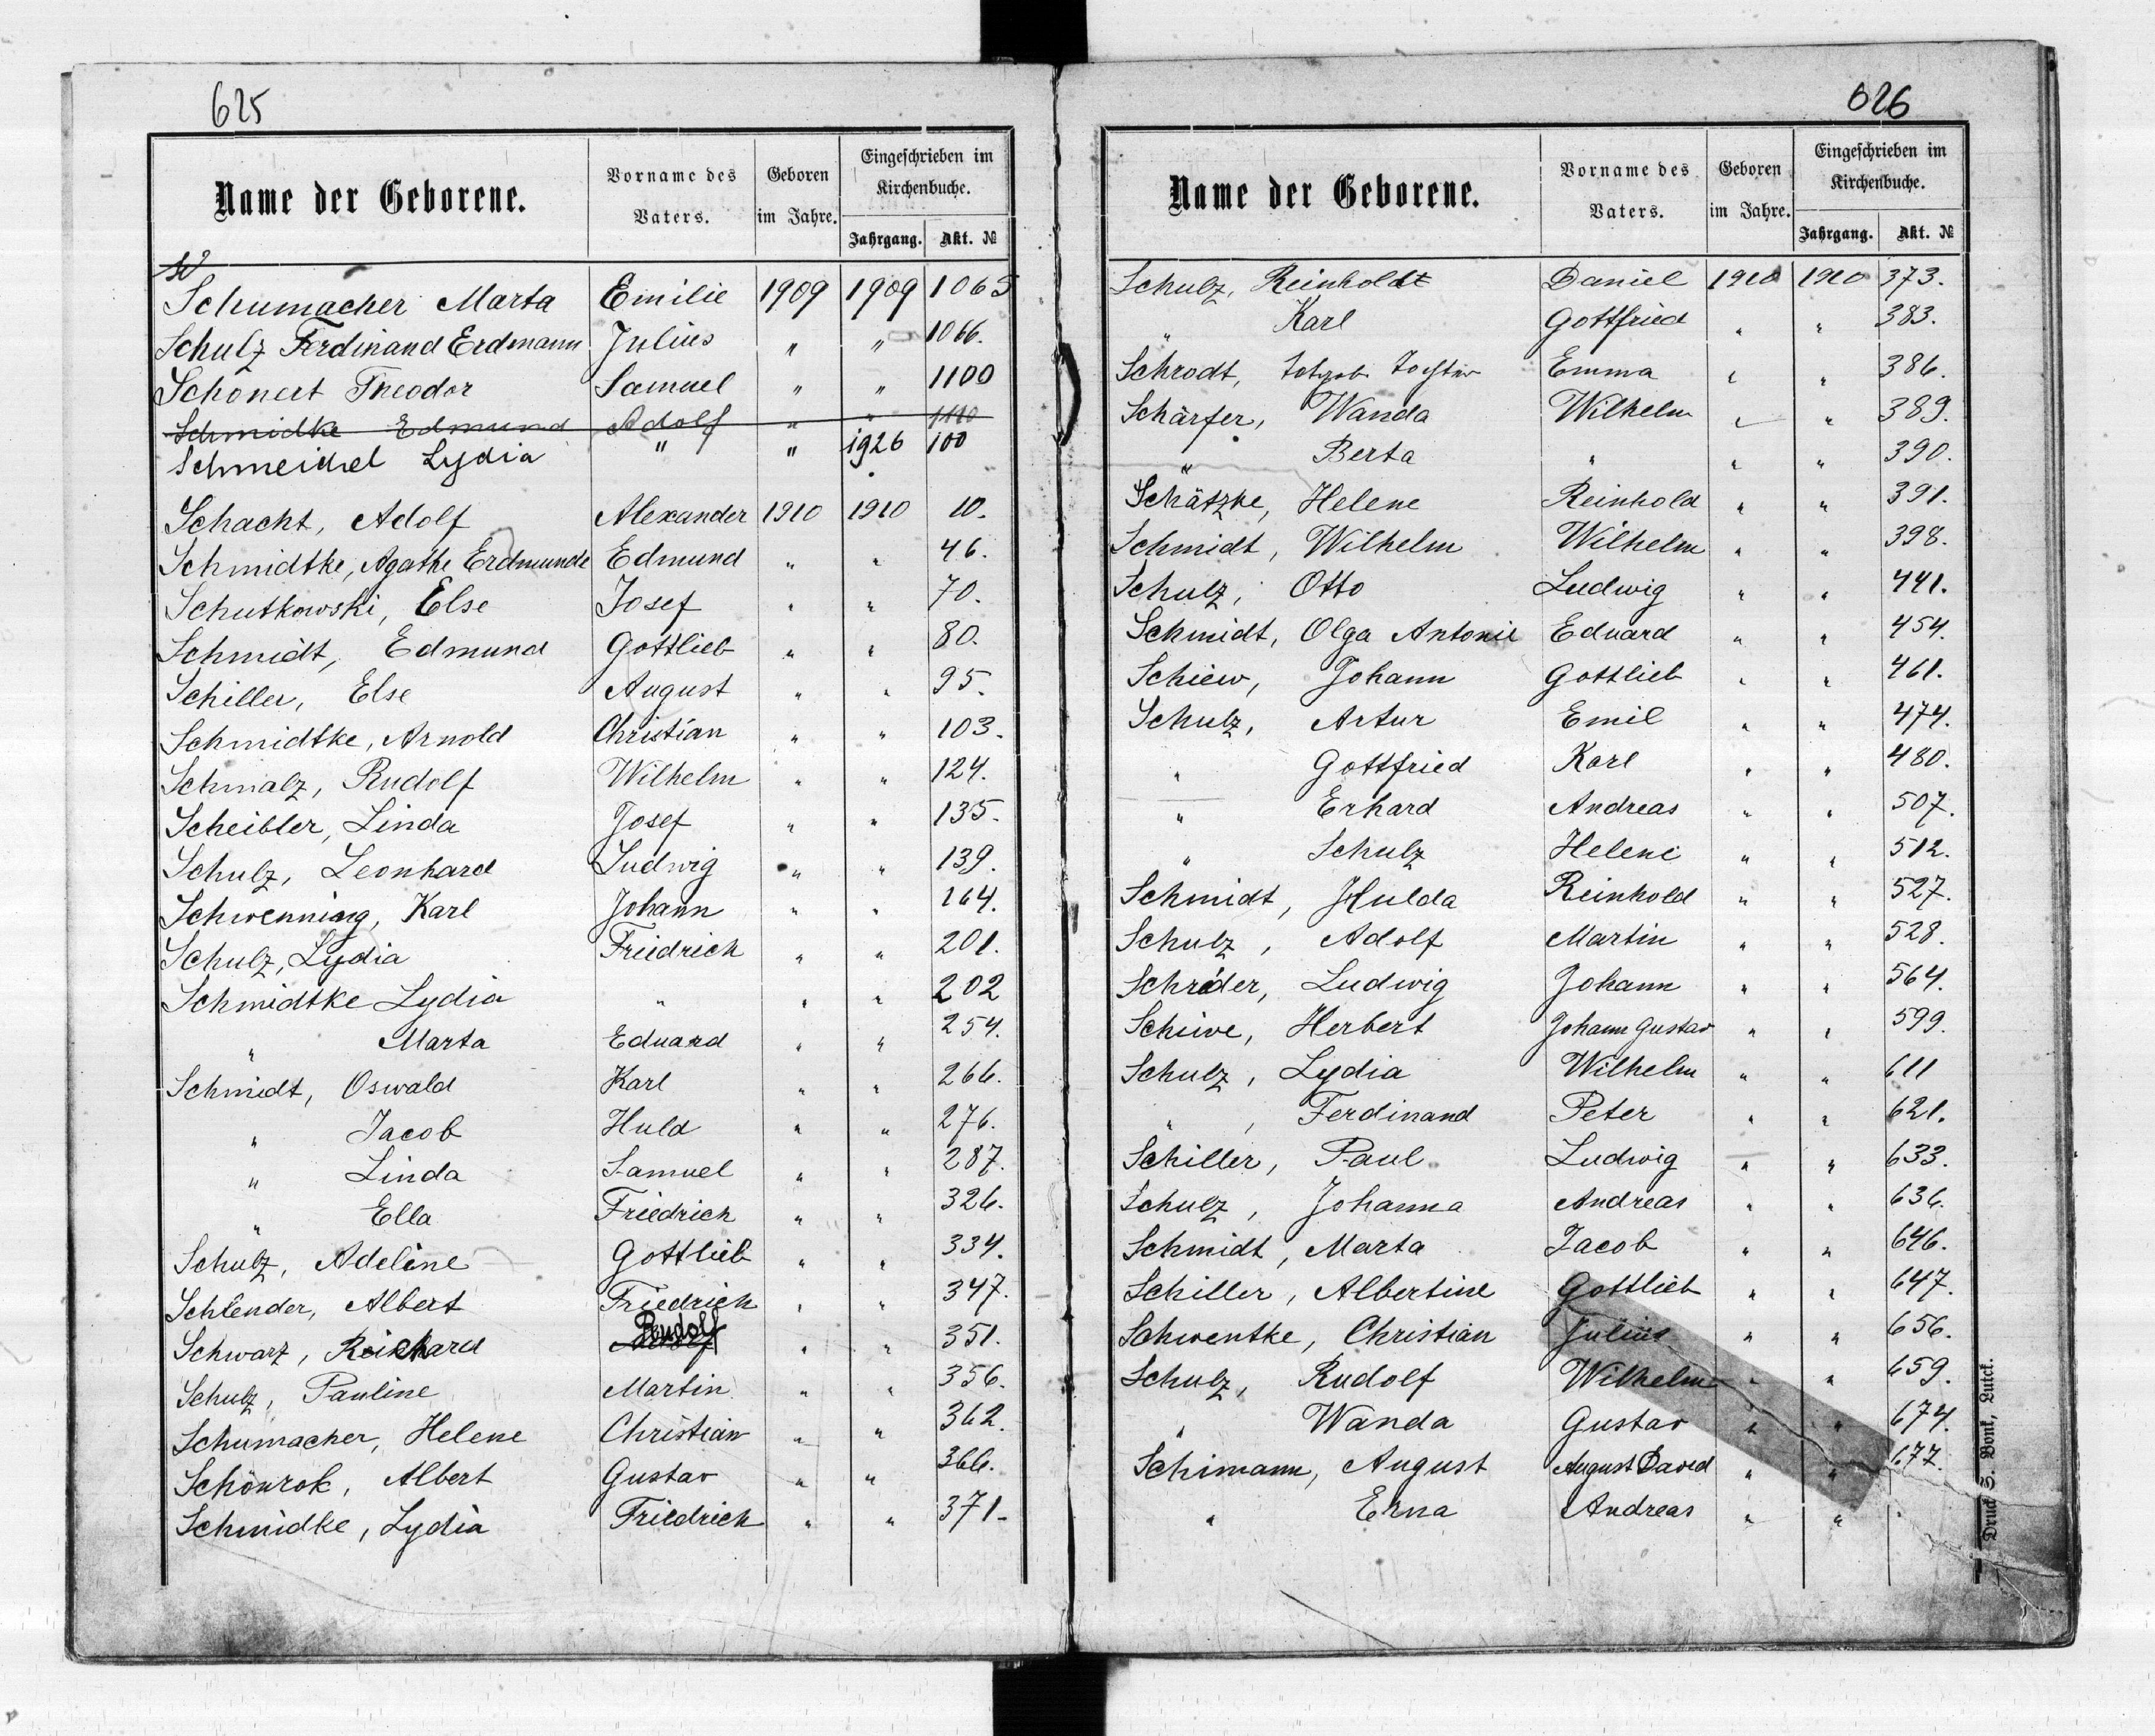 625
Name der Geborene. Vorname des Vaters. Geboren im Jahre. Eingeschrieben im Kirchenbuche. Jahrgang. Akt. №
Schumacher Marta Emilie 1909 1909 1065
Schulz Ferdinand Erdmann Julius " " 1066.
Schönert Theodor Samuel " " 1100
Schmidke Edmund Adolf " " 1110
Schmeichel Lydia " " 1926 100
Schacht, Adolf Alexander 1910 1910 10.
Schmidtke, Agathe Erdmunde Edmund " " 46.
Schutkowski, Else Josef " " 70.
Schmidt, Edmund Gottlieb " " 80.
Schiller, Else August " " 95.
Schmidtke, Arnold Christian " " 103.
Schmalz, Rudolf Wilhelm " " 124.
Scheibler, Linda Josef " " 135.
Schulz, Leonhard Ludwig " " 139.
Schwenning, Karl Johann " " 164.
Schulz, Lydia Friedrich " " 201.
Schmidtke Lydia " " " 202
" Marta Eduard " " 254.
Schmidt, Oswald Karl " " 266.
" Jacob Huld " " 276.
" Linda Samuel " " 287.
" Ella Friedrich " " 326.
Schulz, Adeline Gottlieb " " 334.
Schlender, Albert Friedrich " " 347.
Schwarz, Reichard Rudolf " " 351.
Schulz, Pauline Martin " " 356.
Schumacher, Helene Christian " " 362.
Schönrok, Albert Gustav " " 366.
Schmidke, Lydia Friedrich " " 371.
626
Name der Geborene. Vorname des Vaters. Geboren im Jahre. Eingeschrieben im Kirchenbuche. Jahrgang. Akt. №
Schulz, Reinholdt Daniel 1910 1910 373.
" Karl Gottfried " " 383.
Schrodt, Totgeb. Tochter Emma " " 386.
Schärfer, Wanda Wilhelm " " 389.
" Berta " " " 390.
Schätzke, Helene Reinhold " " 391.
Schmidt, Wilhelm Wilhelm " " 398.
Schulz, Otto Ludwig " " 441.
Schmidt, Olga Antonie Eduard " " 454.
Schiew, Johann Gottlieb " " 461.
Schulz, Artur Emil " " 474.
" Gottfried Karl " " 480.
" Erhard Andreas " " 507.
" Schulz Helene " " 512.
Schmidt, Hulda Reinhold " " 527.
Schulz, Adolf Martin " " 528.
Schröder, Ludwig Johann " " 564.
Schiwe, Herbert Johann Gustav " " 599.
Schulz, Lydia Wilhelm " " 611
" , Ferdinand Peter " " 621.
Schiller, Paul Ludwig " " 633.
Schulz, Johanna Andreas " " 636.
Schmidt, Marta Jacob " " 646.
Schiller, Albertine Gottlieb " " 647.
Schwentke, Christian Julius " " 656.
Schulz, Rudolf Wilhelm " " 659.
" Wanda Gustav " " 674.
Schimann, August August David " " 677.
" Erna Andreas " "
Druck S. Bonk, Lutck.